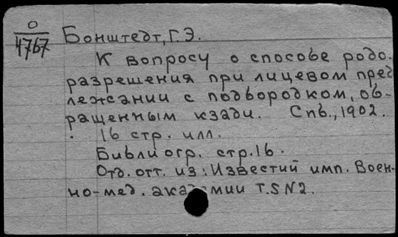 О
4767
Бонштедт, Г.Э.
К вопросу о способе родо-
разрешения при лицевом пред
лежании с подбородком, об-
ращенным кзади. Спб., 1902.
16 стр. илл.
Библиогр. стр. 16.
Отд. отт. из: Известий имп. Воен-
но-мед. академии т. 5 N2.